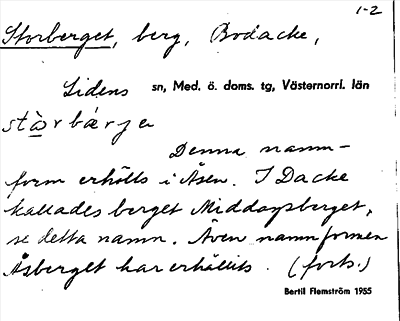 1-2
Storberget, berg, Bodacke,
Lidens sn, Med. ö. doms. tg, Västernorrl. län
stàrbárje
Denna namn-
form erhölls i Åsen. I Dacke
kallades berget Middagsberget,
se detta namn. Även namnformen
Åsberget har erhållits. (forts.)
Bertil Flemström 1955